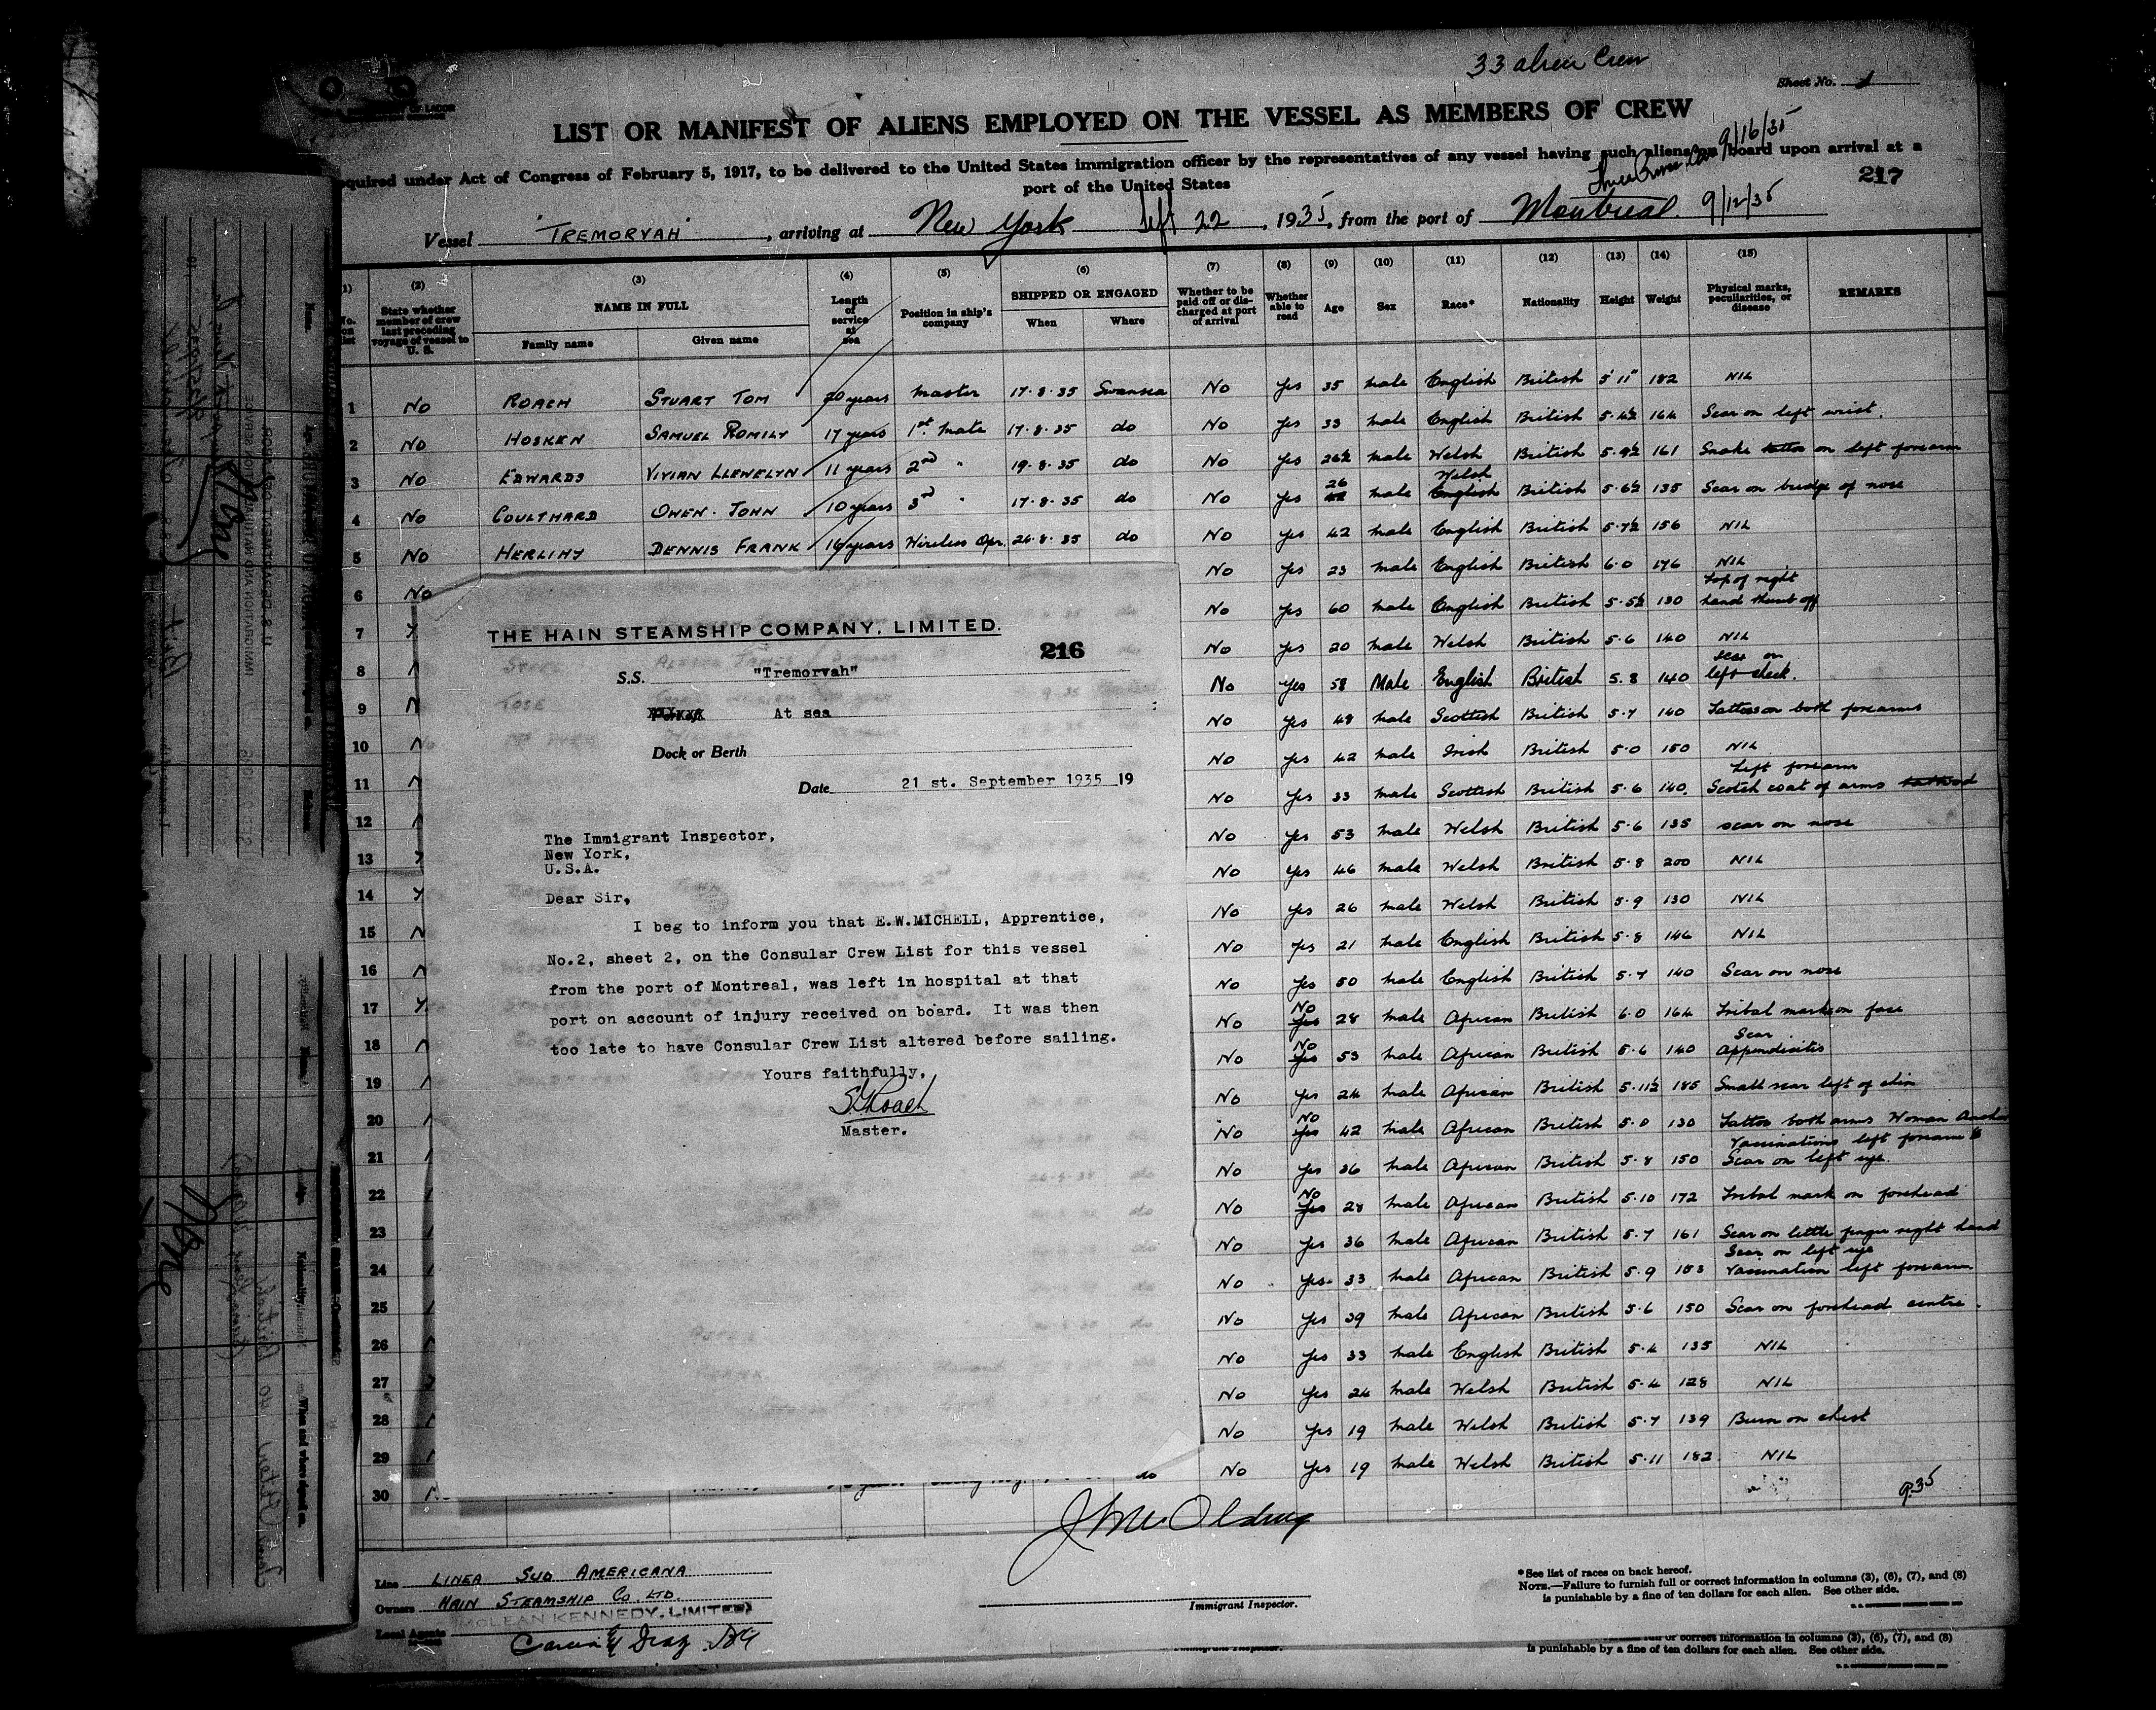 33 alien Crew
Sheet No. 1
LIST OR MANIFEST OF ALIENS EMPLOYED ON THE VESSEL AS MEMBERS OF CREW
9/16/35
equired under Act of Congress of February 5, 1917, to be delivered to the United States immigration officer by the representatives of any vessel having such aliens on board upon arrival at a
port of the United States
217
Vessel "TREMORVAH", arriving at New York Sept 22, 1935, from the port of Montreal. 9/12/35
(1) (2) (3) (4) (5) (6) (7) (8) (9) (10) (11) (12) (13) (14) (15)
No. on list State whether member of crew last preceding voyage of vessel to U. S. NAME IN FULL Family name Given name Length of service at sea Position in ship's company SHIPPED OR ENGAGED When Where Whether to be paid off or discharged at port of arrival Whether able to read Age Sex Race* Nationality Height Weight Physical marks, peculiarities, or disease REMARKS
1 No ROACH STUART TOM 20 years Master 17-8-35 Swansea No Yes 35 Male English British 5'11" 182 NIL
2 No HOSKEN SAMUEL ROMILY 17 years 1st Mate 17-8-35 do No Yes 33 Male English British 5-4½ 164 Scar on left wrist.
3 No EDWARDS VIVIAN LLEWELYN 11 years 2nd " 19-8-35 do No Yes 26½ Male Welsh British 5-9½ 161 Snake tattoo on left forearm
4 No COULTHARD OWEN JOHN 10 years 3rd " 17-8-35 do No Yes 26 Male Welsh English British 5-6½ 135 Scar on bridge of nose
5 No HERLIHY DENNIS FRANK 16 years Wireless Opr. 26-8-35 do No Yes 42 Male English British 5-7½ 156 NIL
6 No No Yes 23 Male English British 6-0 176 NIL
7 Y No Yes 60 Male English British 5-5½ 130 top of right hand thumb off
8 N No Yes 20 Male Welsh British 5-6 140 NIL
9 N No Yes 58 Male English British 5.8 140 scar on left cheek.
10 N No Yes 48 Male Scottish British 5-7 140 Tattoos on both forearms
11 N No Yes 42 Male Irish British 5-0 150 NIL
12 No Yes 33 Male Scottish British 5-6 140 Left forearm Scotch coat of arms tattooed
13 Y No Yes 53 Male Welsh British 5-6 135 scar on nose
14 Y No Yes 46 Male Welsh British 5-8 200 NIL
15 N No Yes 26 Male Welsh British 5-9 130 NIL
16 N No Yes 21 Male English British 5-8 146 NIL
17 Y No Yes 50 Male English British 5-7 140 Scar on nose
18 N No No Yes 28 Male African British 6-0 164 Tribal marks on face
19 No No Yes 53 Male African British 5-6 140 Scar Appendicitis
20 No Yes 24 Male African British 5-11½ 185 Small scar left of chin
21 No No Yes 42 Male African British 5-0 130 Tattoo both arms Woman Anchor
22 No Yes 36 Male African British 5-8 150 Vaccinations left forearm Scar on left eye.
23 No No Yes 28 Male African British 5-10 172 Tribal mark on forehead
24 No Yes 36 Male African British 5-7 161 Scar on little finger right hand
25 No Yes 33 Male African British 5-9 183 Scar on left eye Vaccination left forearm
26 No Yes 39 Male African British 5-6 150 Scar on forehead centre.
27 No Yes 33 Male English British 5-4 135 NIL
28 No Yes 24 Male Welsh British 5-4 128 NIL
29 No Yes 19 Male Welsh British 5-7 139 Burn on chest
30 do No Yes 19 Male Welsh British 5-11 182 NIL
THE HAIN STEAMSHIP COMPANY, LIMITED.
216
S.S. "Tremorvah"
At sea
Dock or Berth
Date 21 st. September 1935 19
The Immigrant Inspector,
New York,
U.S.A.
Dear Sir,
I beg to inform you that E.W.MICHELL, Apprentice,
No.2, sheet 2, on the Consular Crew List for this vessel
from the port of Montreal, was left in hospital at that
port on account of injury received on board. It was then
too late to have Consular Crew List altered before sailing.
Yours faithfully,
S.T.Roach
Master.
9.35
Line LINEA SUD AMERICANA
Owners HAIN STEAMSHIP CO. LTD.
Local Agents McLEAN KENNEDY, LIMITED
Garcia & Diaz
Immigrant Inspector.
*See list of races on back hereof.
NOTE.—Failure to furnish full or correct information in columns (3), (6), (7), and (8)
is punishable by a fine of ten dollars for each alien. See other side.
or correct information in columns (3), (6), (7), and (8)
is punishable by a fine of ten dollars for each alien. See other side.